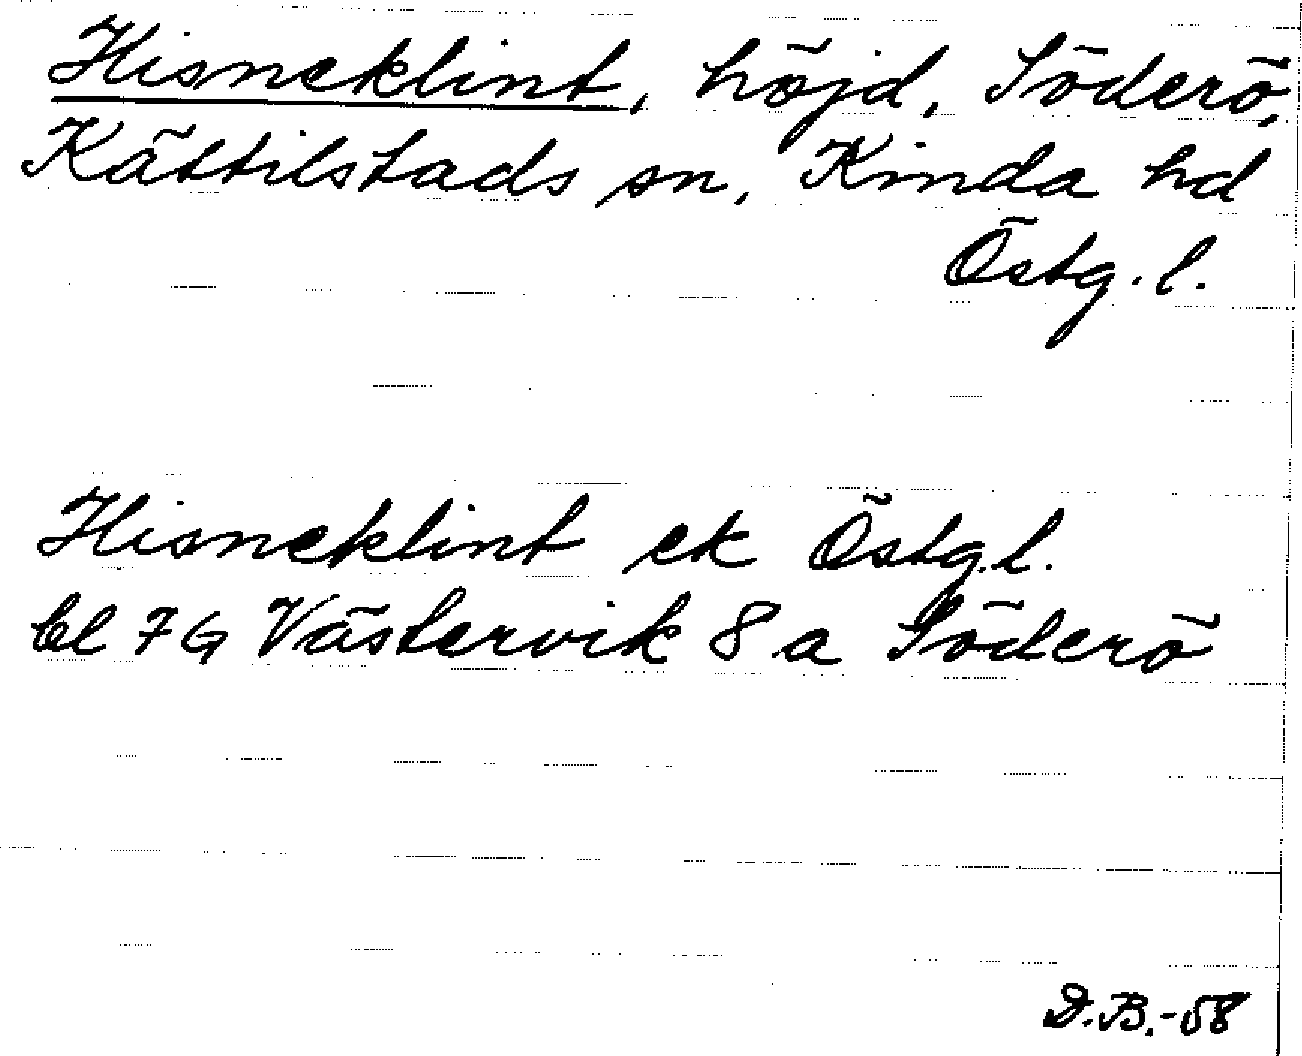 Hisneklint, höjd, Söderö,
Kättilstads sn, Kinda hd
Östg. l.
Hisneklint ek Östg.l.
bl 7G Västervik 8 a Söderö
D.B.-58